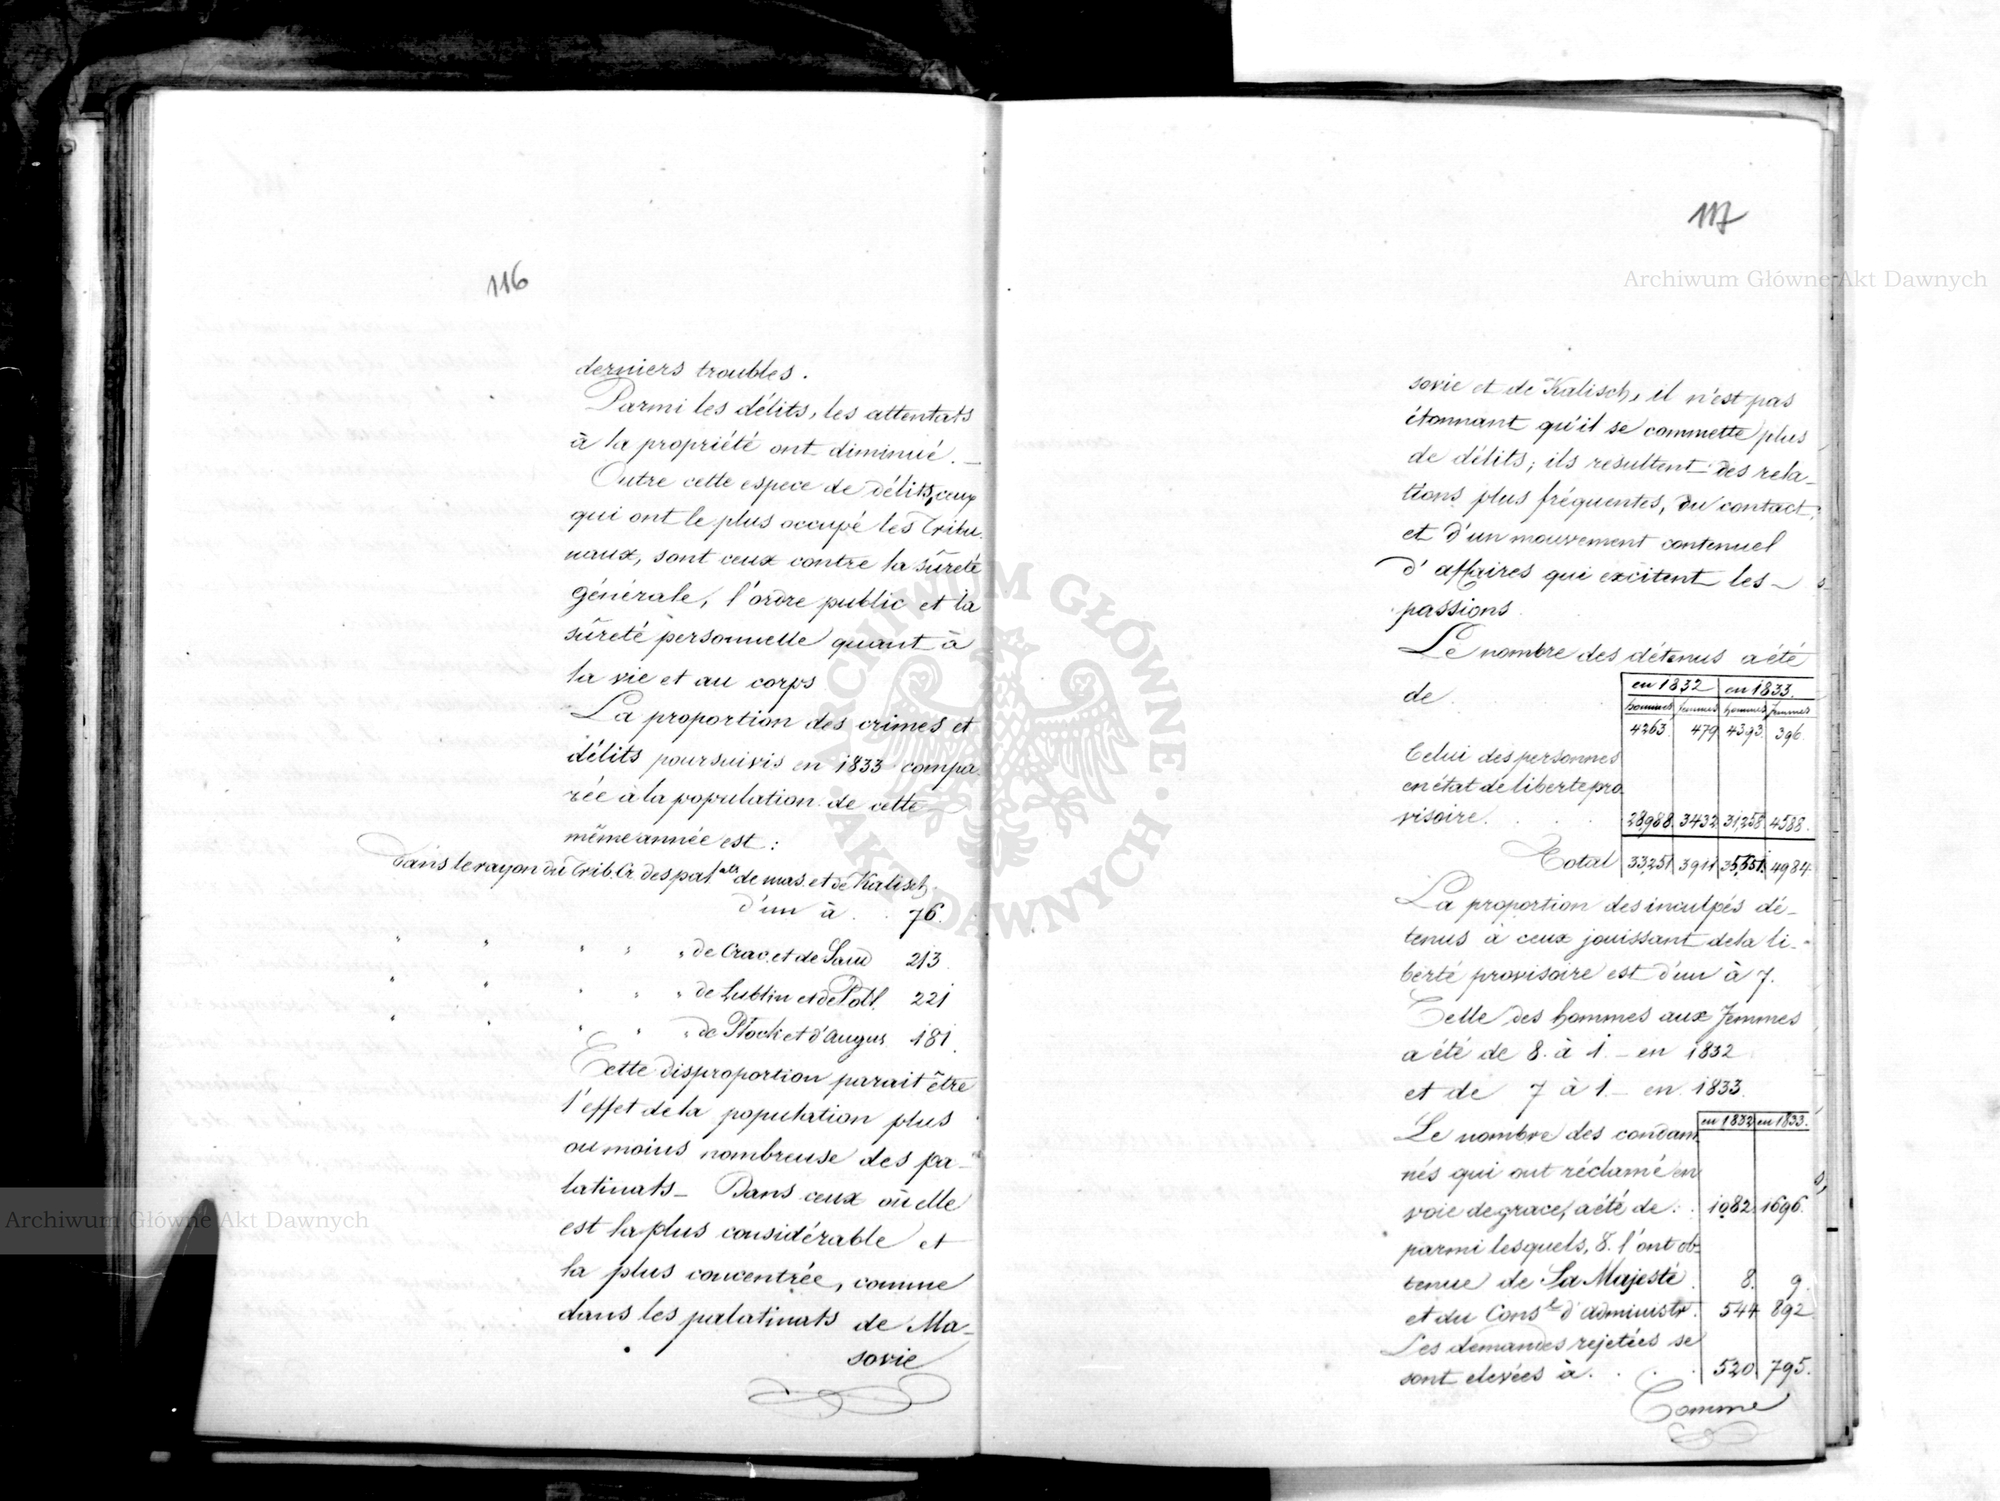 116
derniers troubles.
Parmi les délits, les attentats
à la propriété ont diminué. —
Outre cette espece de délits, ceux
qui ont le plus occupé les Tribu-
naux, sont ceux contre la sûreté
générale, l'ordre public et la
sûreté personnelle quant à
la vie et au corps
La proportion des crimes et
délits poursuivis en 1833 compa-
rée à la population de cette
même année est:
Dans le rayon du Trib. Cr. des pal.ats de mas. et de Kalisch,
d'un à . . 76.
" " " " " de Crac. et de Sand 213.
" " " " " de Lublin et de Podl. 221
" " " " " de Plock et d'Augus. 181.
Cette disproportion parait être
l'effet de la population plus
ou moins nombreuse des pa-
latinats — Dans ceux où elle
est la plus considérable et
la plus concentrée, comme
dans les palatinats de Ma-
sovie
117
sovie et de Kalisch, il n'est pas
étonnant qu'il se commette plus
de délits; ils resultent des rela-
tions plus fréquentes, du contact,
et d'un mouvement contenuel
d'affaires qui excitent les —
passions.
Le nombre des détenus a été
de
en 1832 en 1833.
hommes femmes hommes femmes
4263. 479 4393. 396.
Celui des personnes
en état de liberte pro
visoire. . . . 28,988. 3432 31,258 4588.
Total 33,251 3911 35,651. 4984.
La proportion des inculpés dé-
tenus à ceux jouissant de la li-
berté provisoire est d'un à 7.
Celle des hommes aux femmes
a été de 8. à 1. — en 1832
et de 7 à 1. — en 1833.
en 1832 en 1833.
Le nombre des condam
nés qui ont réclamé en
voie de grace, a été de: . 1082. 1696.
parmi lesquels, 8. l'ont ob-
tenue de Sa Majesté. 8. 9.
et du Cons.l d'administr. 544 892
Les demandes rejetées se
sont elevées à. . . . 520. 795.
Comme
ARCHIWUM GŁÓWNE • AKT DAWNYCH •
Archiwum Główne Akt Dawnych
Archiwum Główne Akt Dawnych